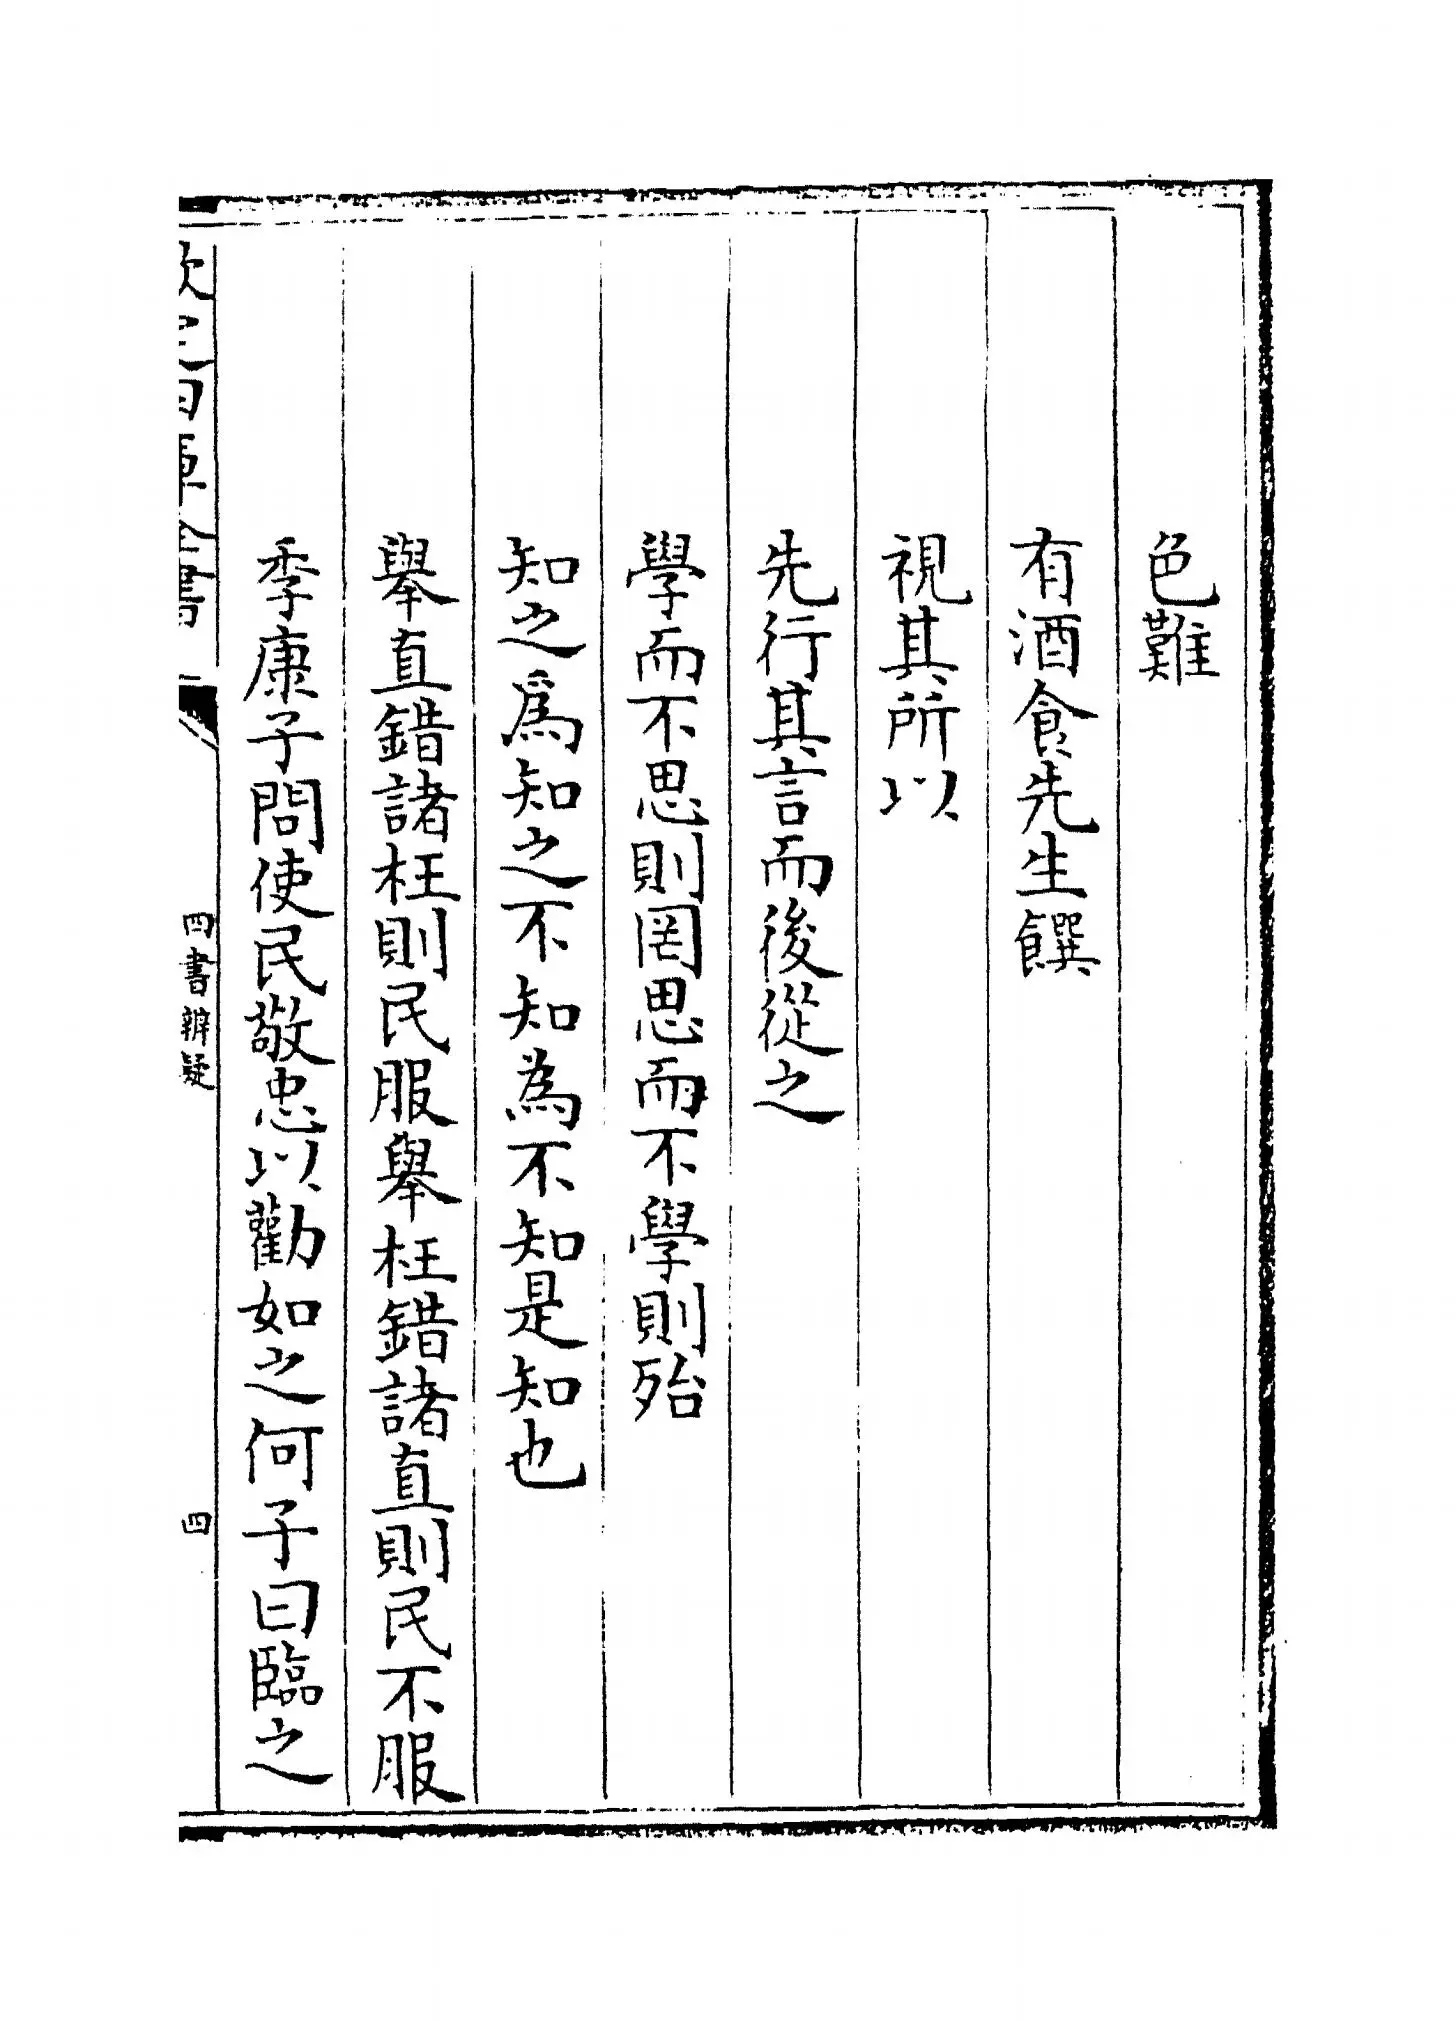 色難
有酒食先生饌
視其所以
先行其言而後從之
學而不思則罔思而不學則殆
知之爲知之不知為不知是知也
舉直錯諸枉則民服舉枉錯諸直則民不服
季康子問使民敬忠以勸如之何子曰臨之
欽定四庫全書
四書辨疑
四